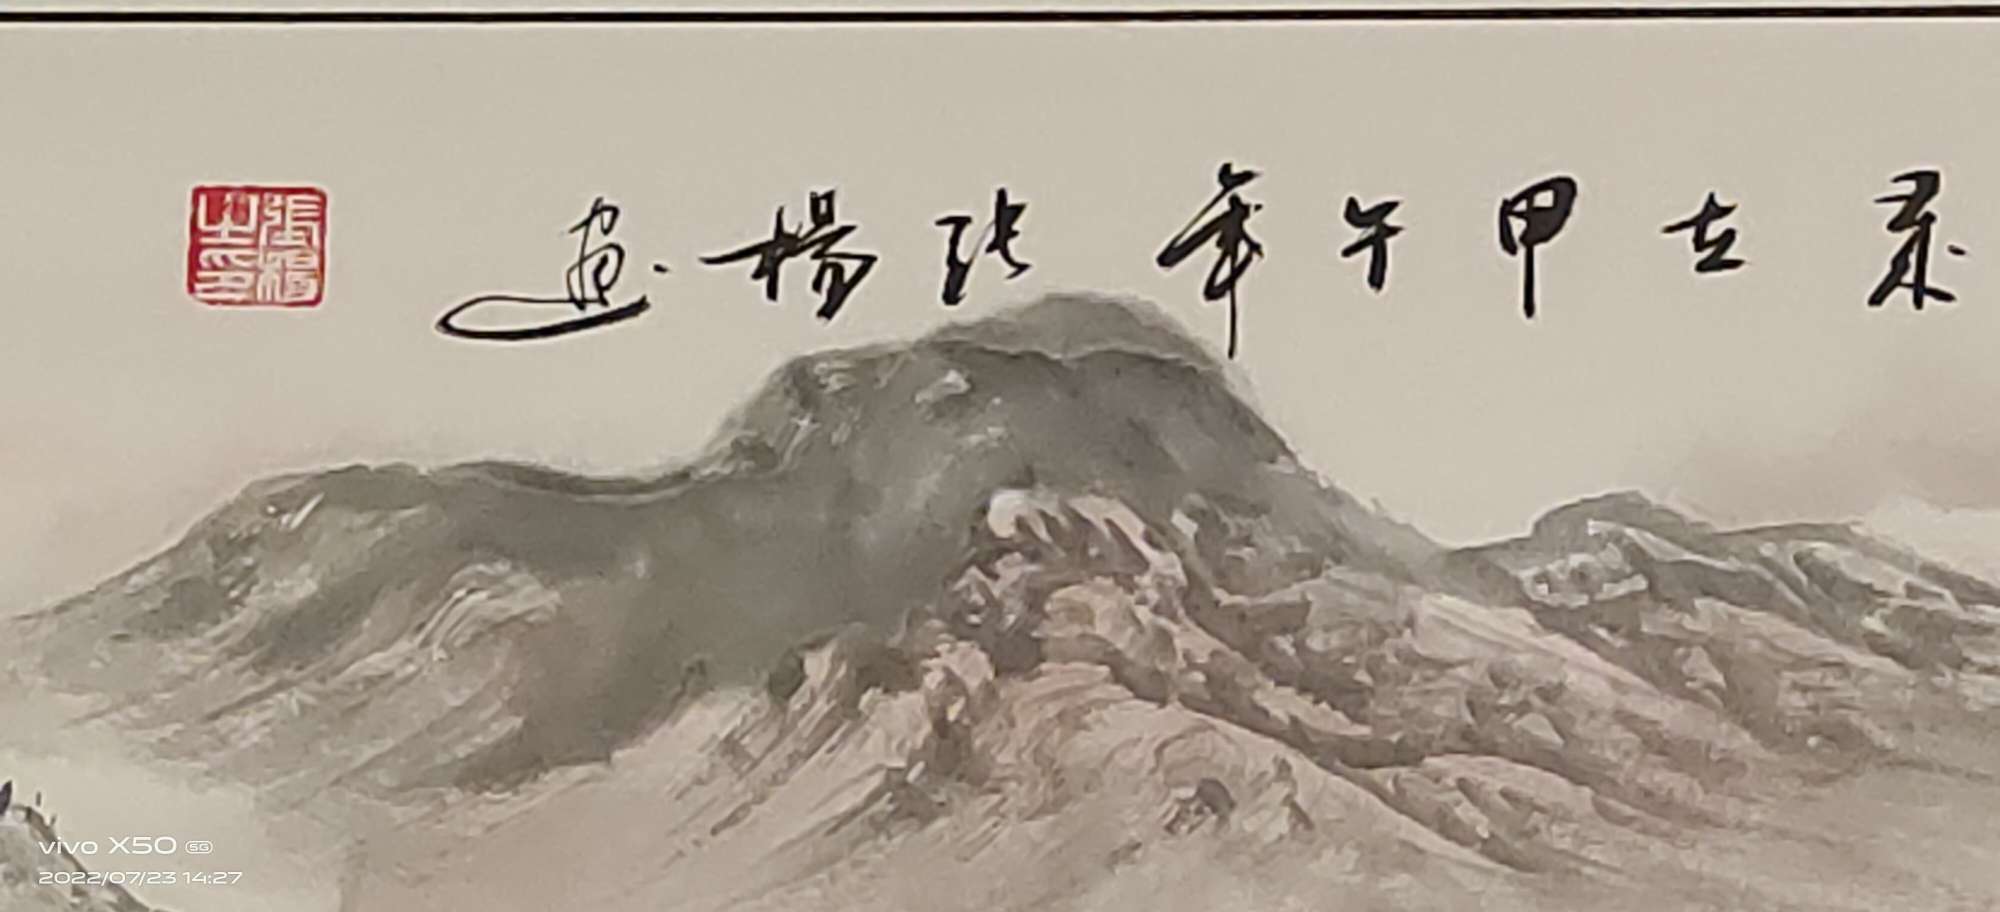 歲在甲午年張楊画
張楊之印
vivo X50 5G
2022/07/23 14:27